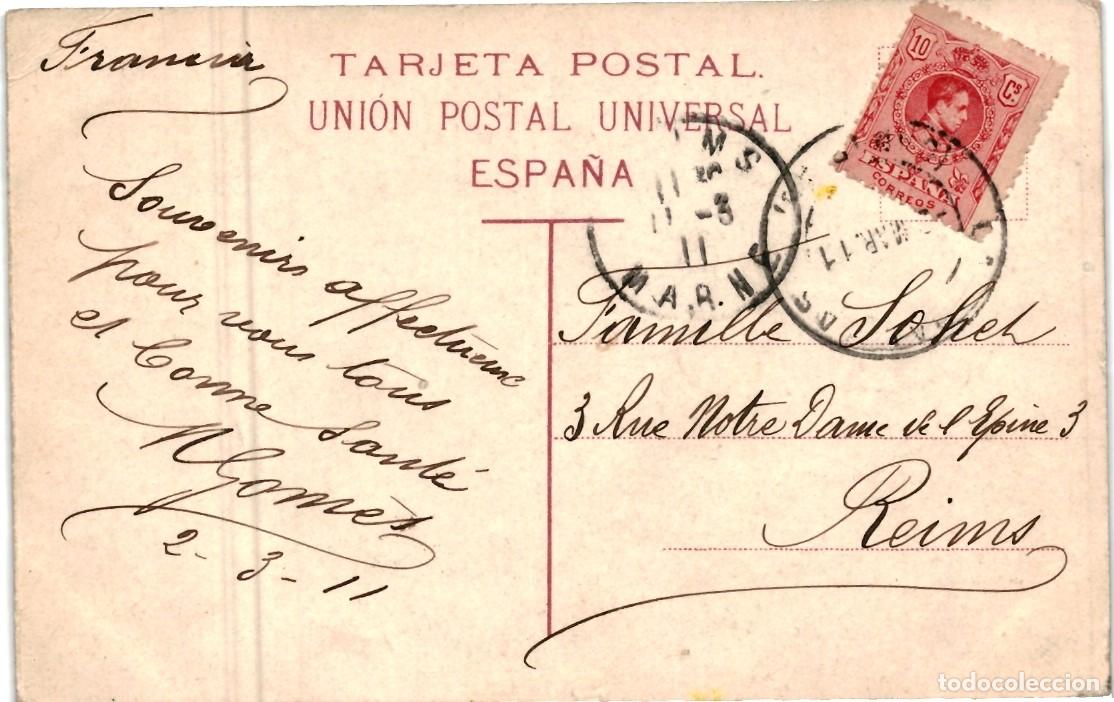 Francia
TARJETA POSTAL.
UNIÓN POSTAL UNIVERSAL
ESPAÑA
10 Cs
ESPAÑA
CORREOS
IMS
11-3
11
MARNE
MAR.11
Souvenirs affectueux
pour vous tous
et bonne santé
NGomés
2-3-11
Famille Sohet
3 Rue Notre Dame de l Epine 3
Reims
todocoleccion